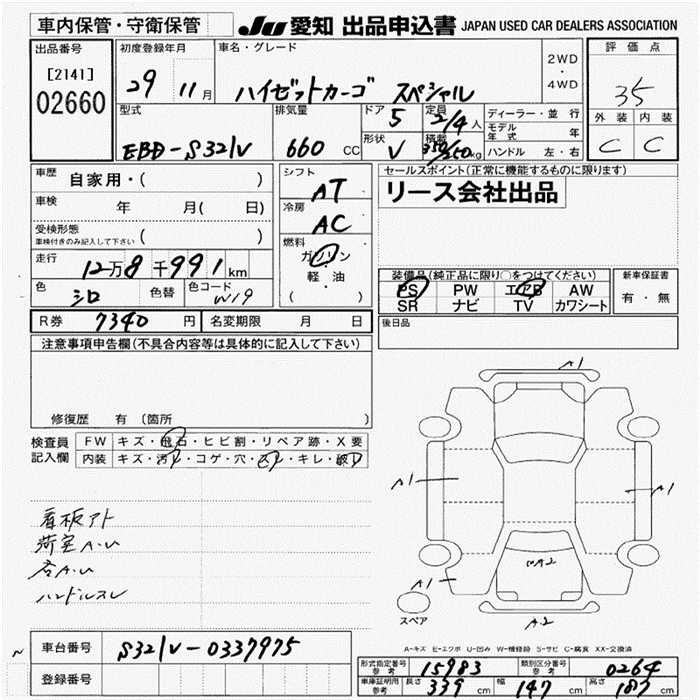 車内保管・守衛保管 JU 愛知 出品申込書 JAPAN USED CAR DEALERS ASSOCIATION
出品番号
[2141]
02660
初度登録年月
29 11月
車名・グレード
ハイゼットカーゴ スペシャル
2WD
・
4WD
評価点
35
外装 内装
C C
型式
EBD-S321V
排気量
660 CC
ドア 5
形状 V
定員 2/4人
積載 350/250kg
ディーラー・並行
モデル年式 年
ハンドル 左・右
車歴 自家用・( )
車検 年 月( 日)
受検形態
車検付きのみ記入して下さい ( )
走行 12万8千991km
色 シロ 色替 色コード W19
シフト AT
冷房 AC
燃料 ガソリン
・
軽・油
( )
セールスポイント(正常に機能するものに限ります)
リース会社出品
装備品(純正品に限り○をつけてください)
PS PW エアB AW
SR ナビ TV カワシート
新車保証書
有・無
R券 7340円 名変期限 月 日
後日品
注意事項申告欄(不具合内容等は具体的に記入して下さい)
修復歴 有(箇所 )
検査員記入欄
FW キズ・飛石・ヒビ割・リペア跡・X要
内装 キズ・汚レ・コゲ・穴・スレ・キレ・破レ
看板アト
荷室A.U
各A.U
ハンドルスレ
A1
A1
A1
A1
A2
A2
スペア
A-キズ E-エクボ U-凹み W-補修跡 S-サビ C-腐食 XX-交換済
車台番号 S321V-0337975
登録番号
形式指定番号 参考 15983 類別区分番号 参考 0264
車庫証明用 参考 長さ 339cm 幅 147cm 高さ 187cm